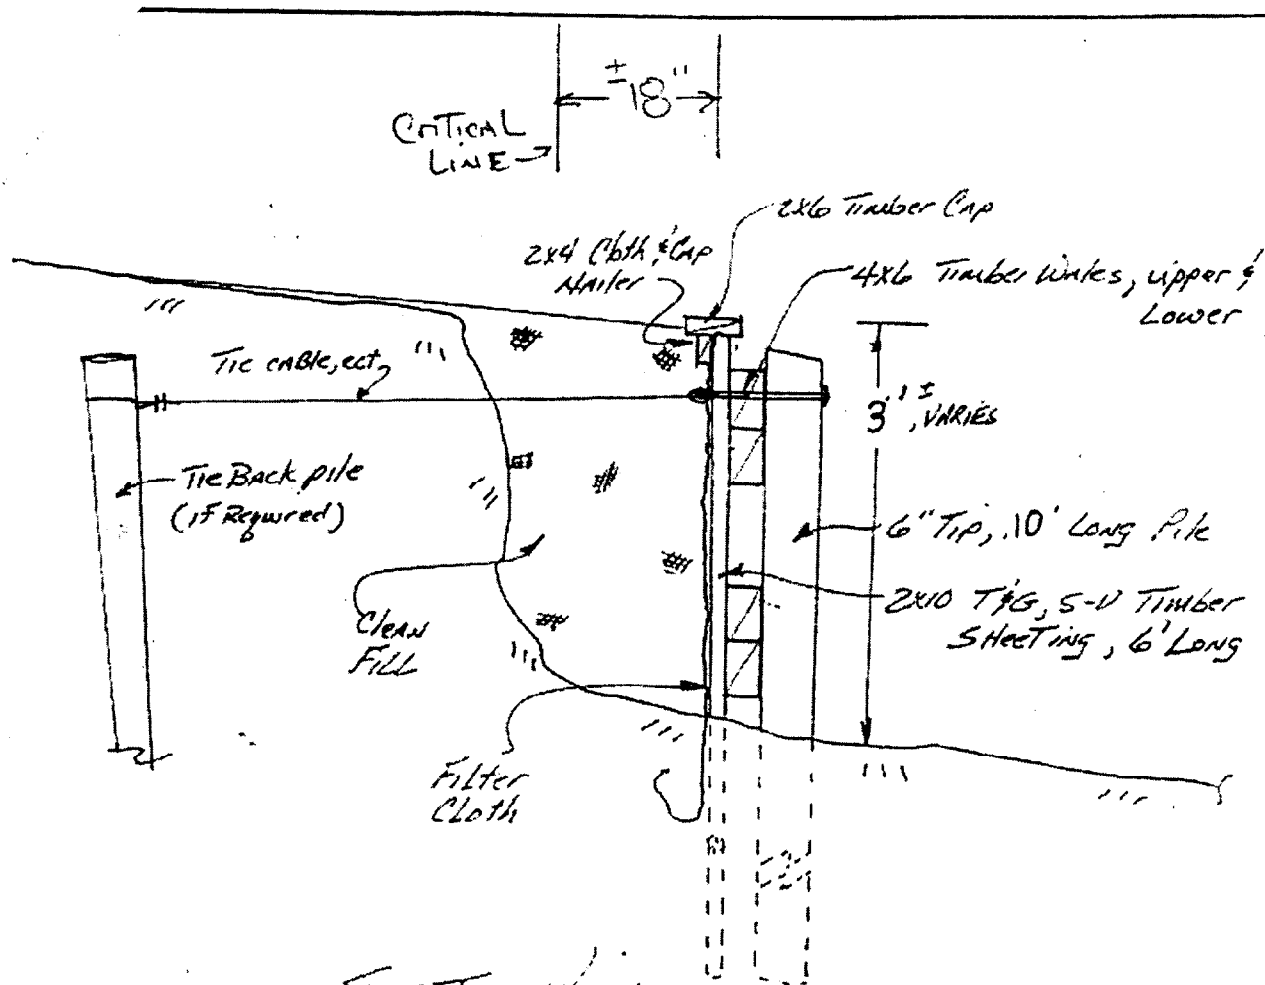 ± 18"
CRITICAL
LINE
2x6 Timber Cap
2x4 Cloth & Cap
Nailer
4x6 Timber Wales, upper &
Lower
Tie cable, ect.
3'±, VARIES
Tie Back pile
(if Required)
6" Tip, 10' Long Pile
2x10 T&G, 5-V Timber
SHeeTing, 6' Long
Clean
FiLL
FiLter
CLoth